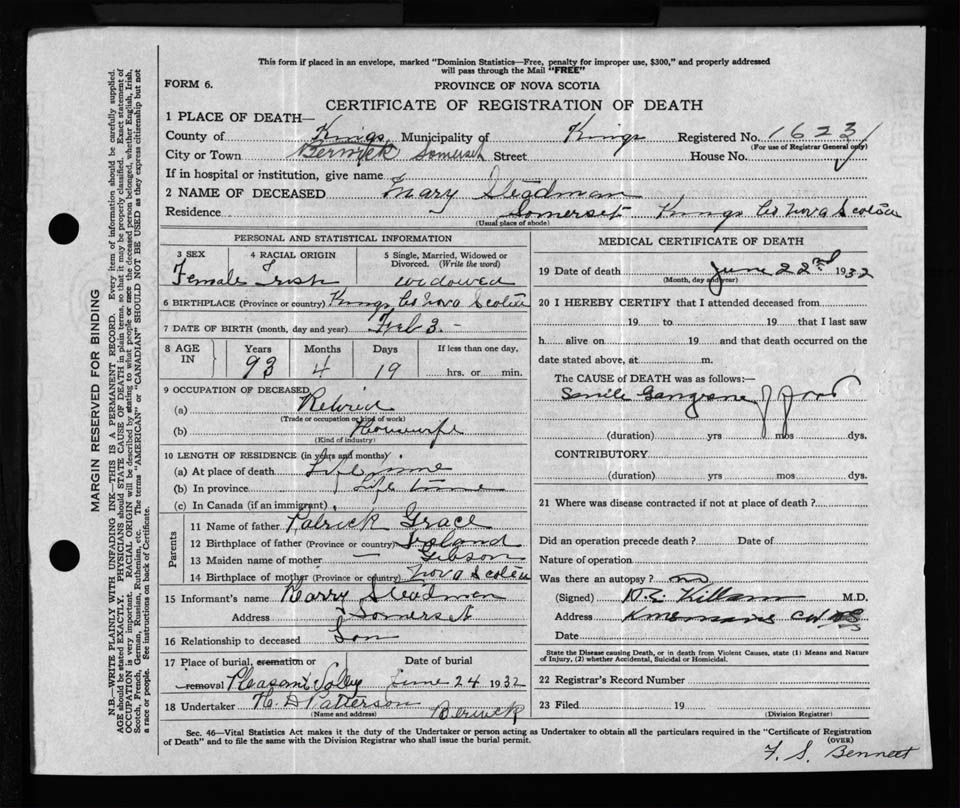 This form if placed in an envelope, marked "Dominion Statistics—Free, penalty for improper use, $300," and properly addressed
will pass through the Mail "FREE"
FORM 6.
PROVINCE OF NOVA SCOTIA
CERTIFICATE OF REGISTRATION OF DEATH
1 PLACE OF DEATH—
County of Kings Municipality of Kings Registered No. 1623
(For use of Registrar General only)
City or Town Berwick Somerset Street House No.
If in hospital or institution, give name
2 NAME OF DECEASED Mary Steadman
Residence Somerset Kings Co Nova Scotia
(Usual place of abode)
PERSONAL AND STATISTICAL INFORMATION
3 SEX 4 RACIAL ORIGIN 5 Single, Married, Widowed or Divorced. (Write the word)
Female Irish widowed
6 BIRTHPLACE (Province or country) Kings Co Nova Scotia
7 DATE OF BIRTH (month, day and year) Feb 3 -
8 AGE IN Years Months Days If less than one day,
93 4 19 hrs. or min.
9 OCCUPATION OF DECEASED
(a) Retired
(Trade or occupation or kind of work)
(b) Housewife
(Kind of industry)
10 LENGTH OF RESIDENCE (in years and months)
(a) At place of death Life time
(b) In province Life time
(c) In Canada (if an immigrant)
Parents
11 Name of father Patrick Grace
12 Birthplace of father (Province or country) Ireland
13 Maiden name of mother — Gibson
14 Birthplace of mother (Province or country) Nova Scotia
15 Informant's name Harry Steadman
Address Somerset
16 Relationship to deceased Son
17 Place of burial, cremation or removal Date of burial
Pleasant Valley June 24 1932
18 Undertaker H. D Patterson Berwick
(Name and address)
MEDICAL CERTIFICATE OF DEATH
19 Date of death June 22nd 1932
(Month, day and year)
20 I HEREBY CERTIFY that I attended deceased from
19 to 19 that I last saw
h alive on 19 and that death occurred on the
date stated above, at m.
The CAUSE of DEATH was as follows:—
Senile Gangrene of foot
(duration) yrs mos dys.
CONTRIBUTORY
(duration) yrs mos dys.
21 Where was disease contracted if not at place of death?
Did an operation precede death? Date of
Nature of operation
Was there an autopsy? no
(Signed) Killam M.D.
Address
Date
State the Disease causing Death, or in death from Violent Causes, state (1) Means and Nature
of Injury, (2) whether Accidental, Suicidal or Homicidal.
22 Registrar's Record Number
23 Filed 19
(Division Registrar)
Sec. 46—Vital Statistics Act makes it the duty of the Undertaker or person acting as Undertaker to obtain all the particulars required in the "Certificate of Registration
of Death" and to file the same with the Division Registrar who shall issue the burial permit.
(OVER)
F. S. Bennett
MARGIN RESERVED FOR BINDING
N.B.—WRITE PLAINLY WITH UNFADING INK—THIS IS A PERMANENT RECORD. Every item of information should be carefully supplied.
AGE should be stated EXACTLY. PHYSICIANS should STATE CAUSE OF DEATH in plain terms, so that it may be properly classified. Exact statement of
OCCUPATION is very important. RACIAL ORIGIN will be described by stating to what people or race the deceased person belonged, whether English, Irish,
Scotch, French, German, Russian, Ruthenian, etc. The terms "AMERICAN" or "CANADIAN" SHOULD NOT BE USED as they express citizenship but not
a race or people. See instructions on back of Certificate.